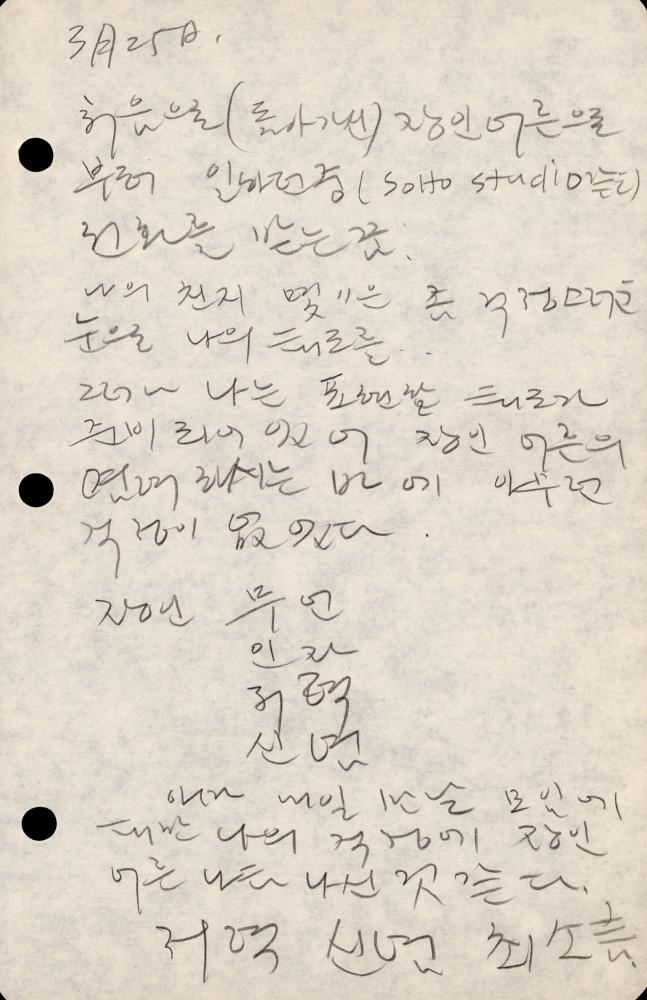 3月25日.
처음으로 (돌아가신) 장인어른으로
부터 인하던중 (SOHO studio같은디)
전화를 받는 꿈.
나의 천지 몇〃은 좀 걱정스러운
눈으로 나의 태도를..
그러나 나는 표현할 태도가
준비 되어 있어 장인 어른의
염려 하시는 바에 아무런
걱정이 없었다.
자연 무언
인자
저력
신념
아마 내일 만날 모임에
대한 나의 걱정에 장인
어른 나타나신 것 같다.
저력 신념 최소한.